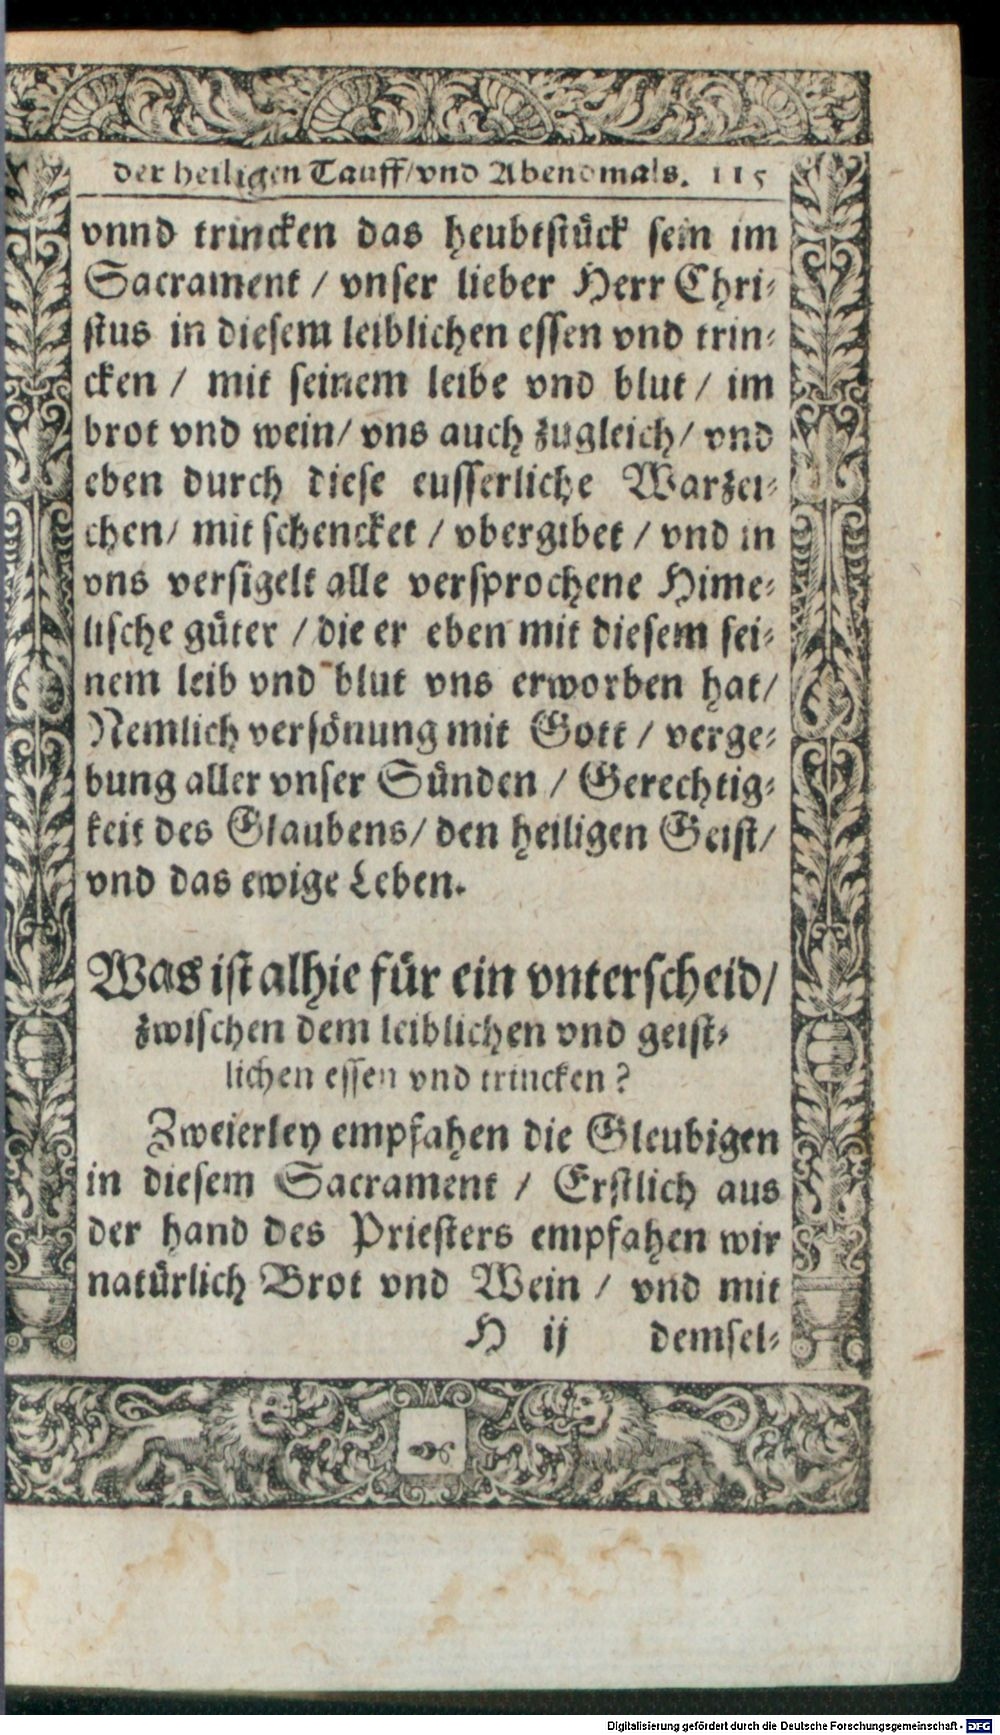 der heiligen Tauff/vnd Abendmals. 115
vnnd trincken das heubtstück sein im
Sacrament / vnser lieber Herr Chri-
stus in diesem leiblichen essen vnd trin-
cken / mit seinem leibe vnd blut / im
brot vnd wein/ vns auch zugleich/ vnd
eben durch diese eusserliche Warzei-
chen/ mit schencket / vbergibet / vnd in
vns versigelt alle versprochene Hime-
lische güter / die er eben mit diesem sei-
nem leib vnd blut vns erworben hat/
Nemlich versönung mit Gott / verge-
bung aller vnser Sünden / Gerechtig-
keit des Glaubens/ den heiligen Geist/
vnd das ewige Leben.
Was ist alhie für ein vnterscheid/
zwischen dem leiblichen vnd geist-
lichen essen vnd trincken?
Zweierley empfahen die Gleubigen
in diesem Sacrament / Erstlich aus
der hand des Priesters empfahen wir
natürlich Brot vnd Wein / vnd mit
H ij demsel-
Digitalisierung gefördert durch die Deutsche Forschungsgemeinschaft - DFG